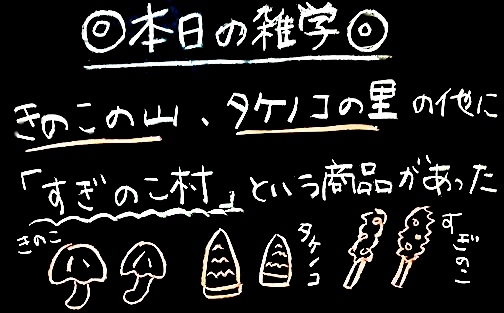 ◎本日の雑学◎
きのこの山、タケノコの里の他に
「すぎのこ村」という商品があった
きのこ
タケノコ
すぎのこ